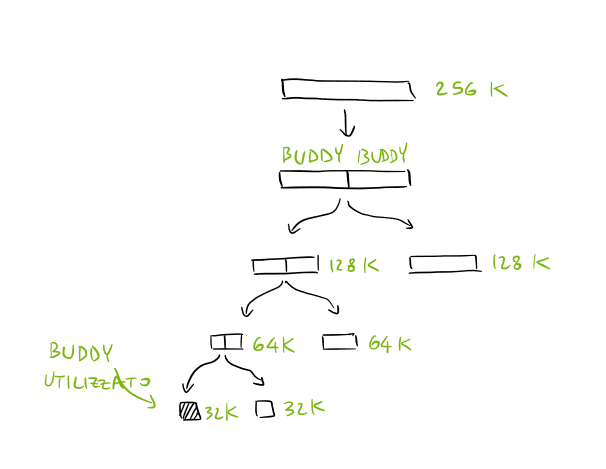 256 K
BUDDY BUDDY
128 K 128 K
64K 64K
BUDDY
UTILIZZATO
32K 32K